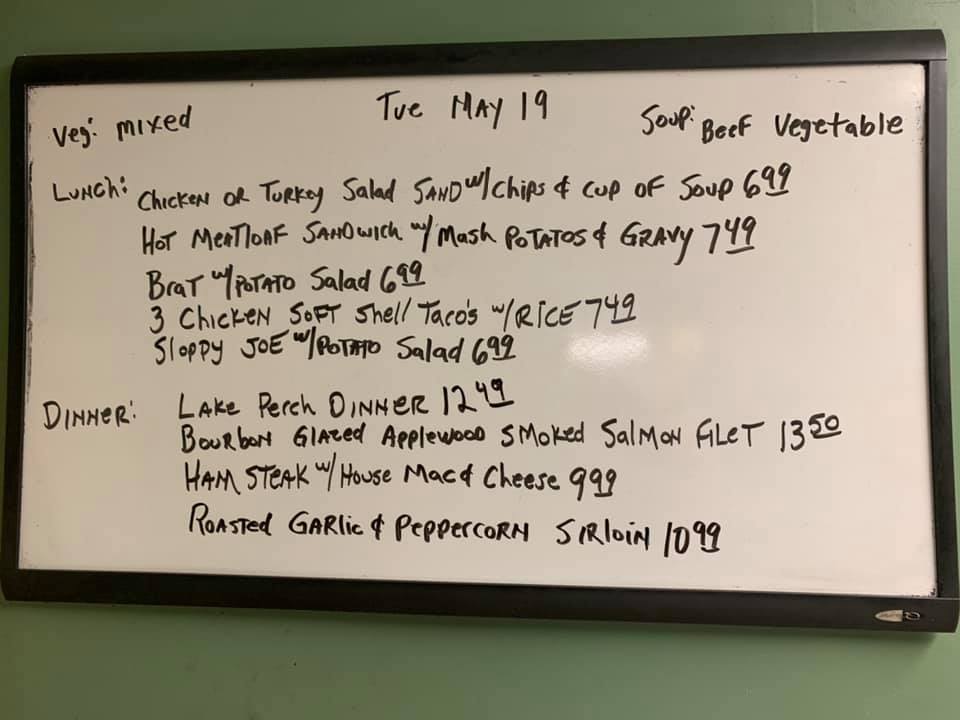 Veg: mixed
Tue May 19
Soup: Beef Vegetable
Lunch: Chicken or Turkey Salad Sand w/ chips & cup of Soup 6.99
Hot Meatloaf Sandwich w/ Mash Potatos & Gravy 7.49
Brat w/ Potato Salad 6.99
3 Chicken Soft Shell Taco's w/ Rice 7.49
Sloppy Joe w/ Potato Salad 6.99
Dinner: Lake Perch Dinner 12.49
Bourbon Glazed Applewood Smoked Salmon Filet 13.50
Ham Steak w/ House Mac & Cheese 9.99
Roasted Garlic & Peppercorn Sirloin 10.99